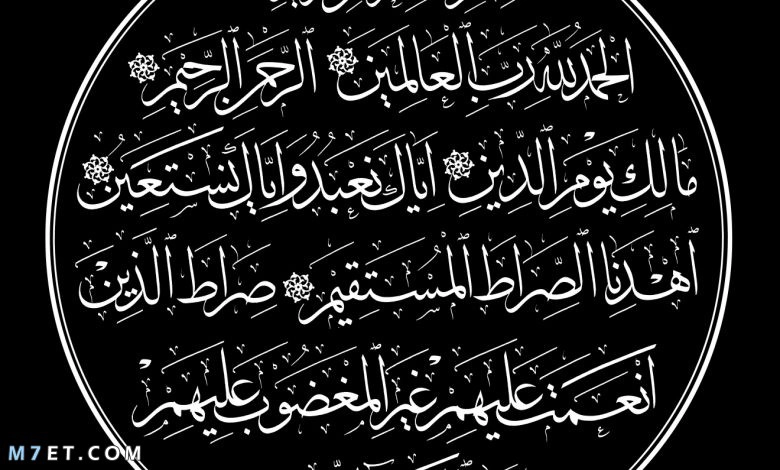 الحمد لله رب العالمين ۞ الرحمن الرحيم ۞
مالك يوم الدين ۞ اياك نعبد واياك نستعين ۞
ٱهدنا الصراط المستقيم ۞ صراط الذين
انعمت عليهم غير المغضوب عليهم
M7ET.COM